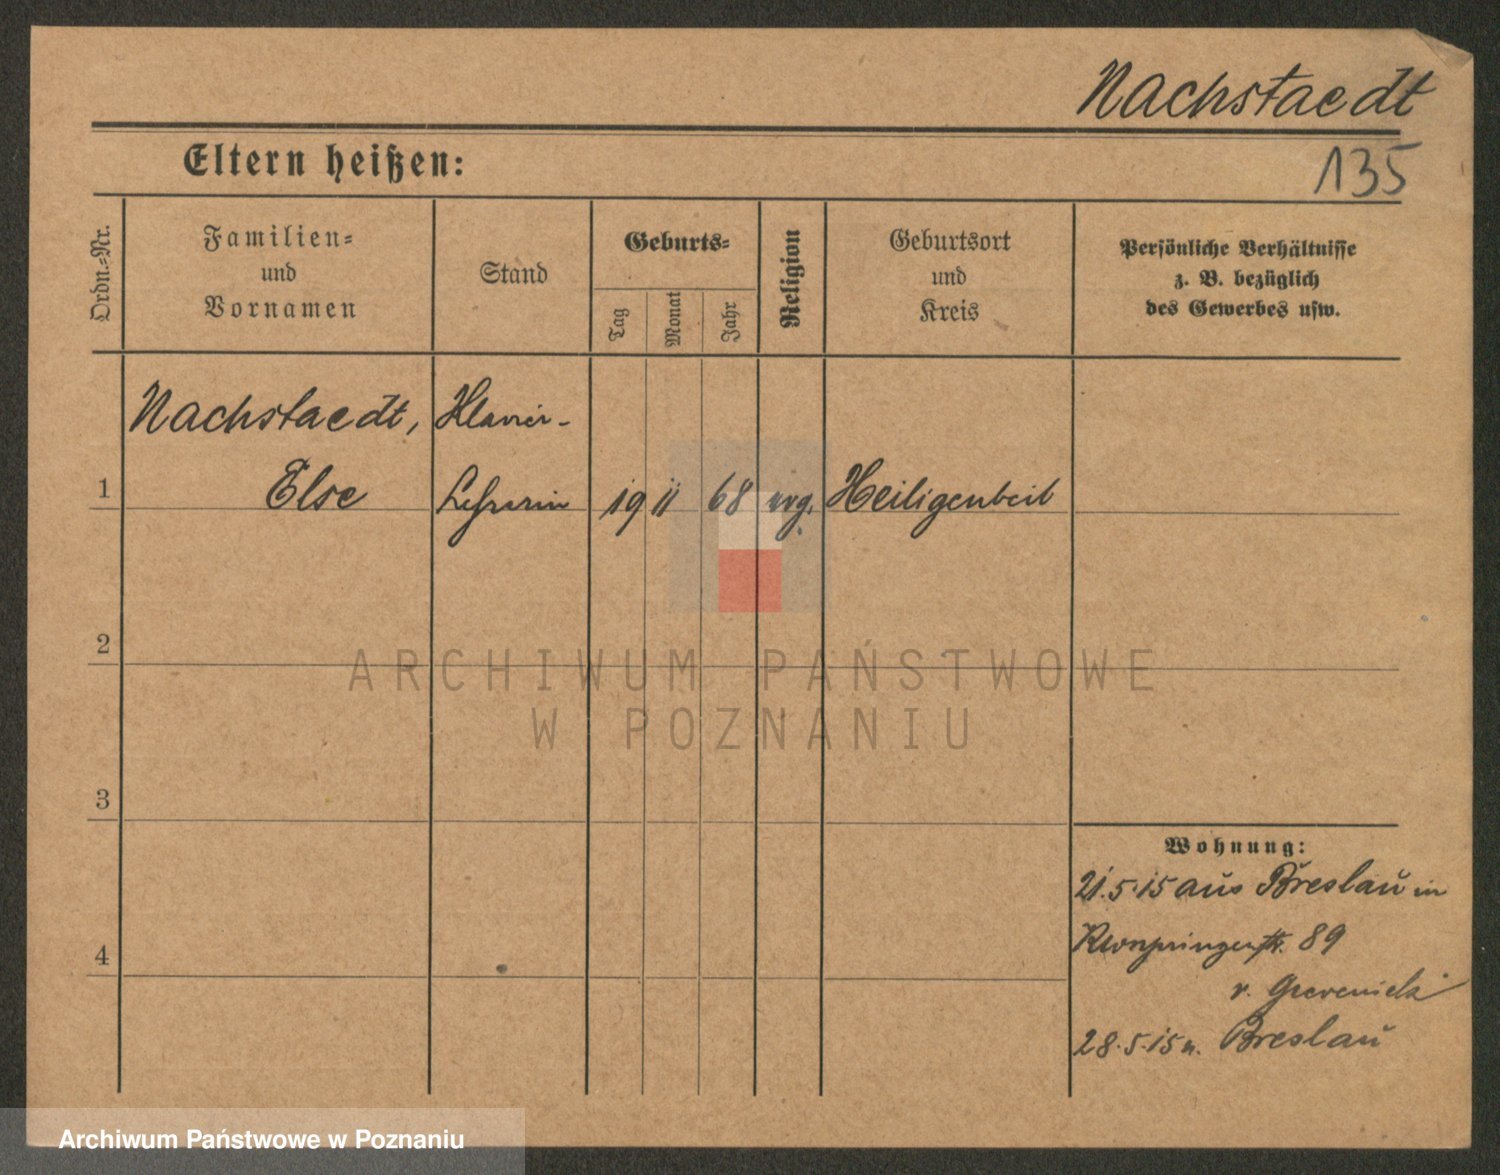 Nachstaedt
Eltern heißen:
135
Ordn.=Nr.
Familien=
und
Vornamen
Stand
Geburts=
Tag
Monat
Jahr
Religion
Geburtsort
und
Kreis
Persönliche Verhältnisse
z. B. bezüglich
des Gewerbes usw.
Nachstaedt,
Klavier-
1
Else
Lehrerin
19
11
68
evg.
Heiligenbeil
2
ARCHIWUM PAŃSTWOWE
W POZNANIU
3
Wohnung:
21.5.15 aus Breslau in
89
4
28.5.15 n. Breslau
Archiwum Państwowe w Poznaniu